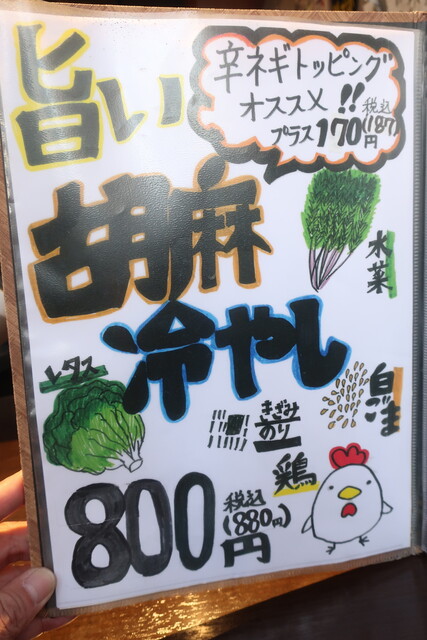 旨い
辛ネギトッピング
オススメ!!
プラス170円
税込(187)
胡麻
冷やし
水菜
レタス
白ごま
きざみのり
鶏
800円
税込(880円)